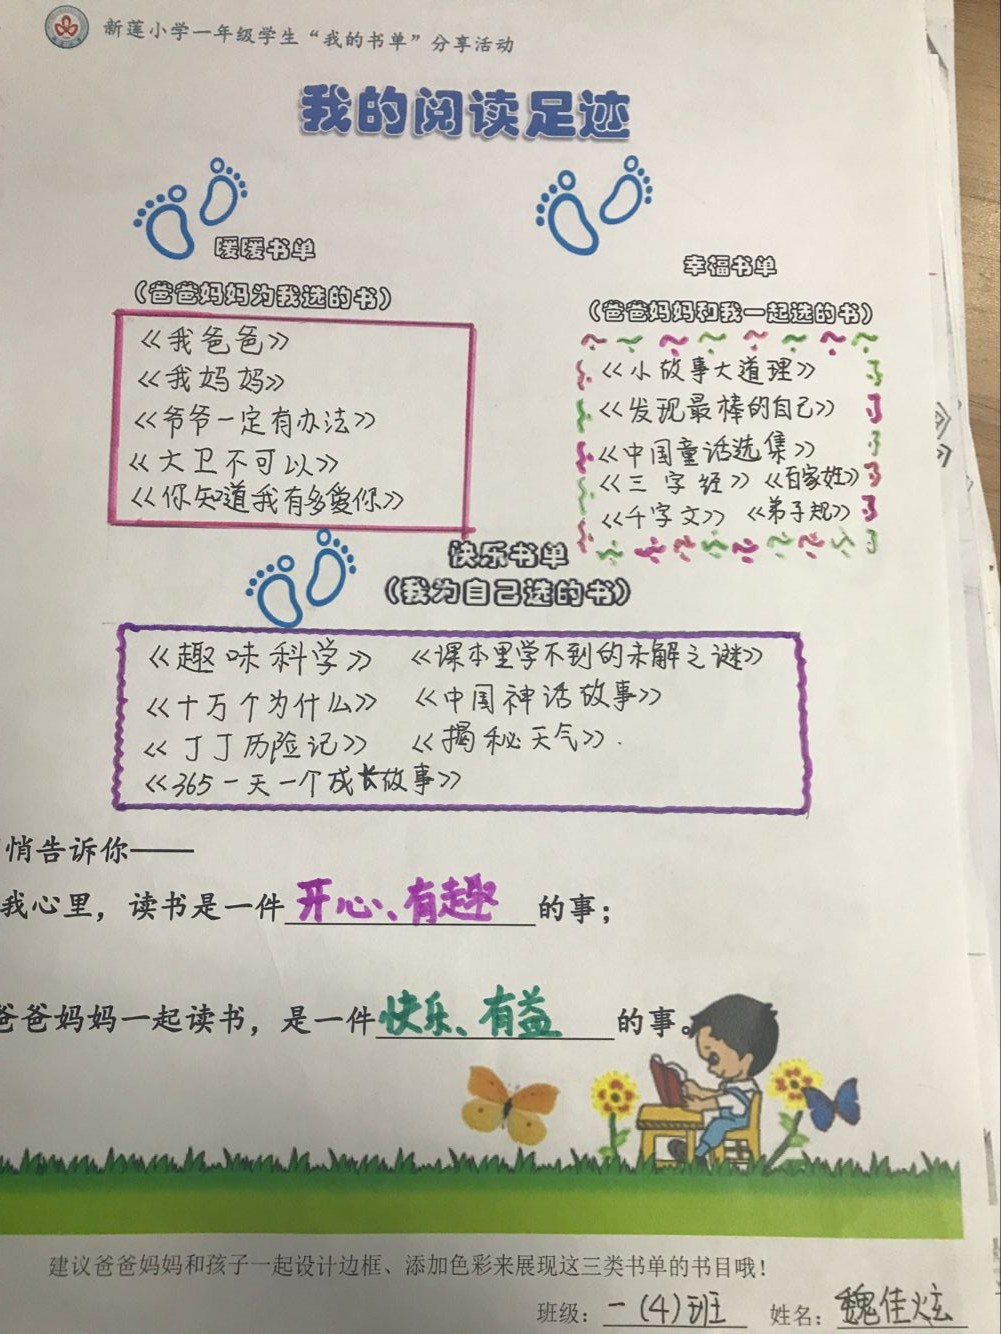 新莲小学一年级学生“我的书单”分享活动
我的阅读足迹
暖暖书单
（爸爸妈妈为我选的书）
《我爸爸》
《我妈妈》
《爷爷一定有办法》
《大卫不可以》
《你知道我有多爱你》
幸福书单
（爸爸妈妈和我一起选的书）
《小故事大道理》
《发现最棒的自己》
《中国童话选集》
《三字经》 《百家姓》
《千字文》 《弟子规》
快乐书单
（我为自己选的书）
《趣味科学》 《课本里学不到的未解之谜》
《十万个为什么》 《中国神话故事》
《丁丁历险记》 《揭秘天气》.
《365一天一个成长故事》
悄告诉你——
我心里，读书是一件开心、有趣的事；
爸爸妈妈一起读书，是一件快乐、有益的事。
建议爸爸妈妈和孩子一起设计边框、添加色彩来展现这三类书单的书目哦！
班级：一(4)班 姓名：魏佳炫